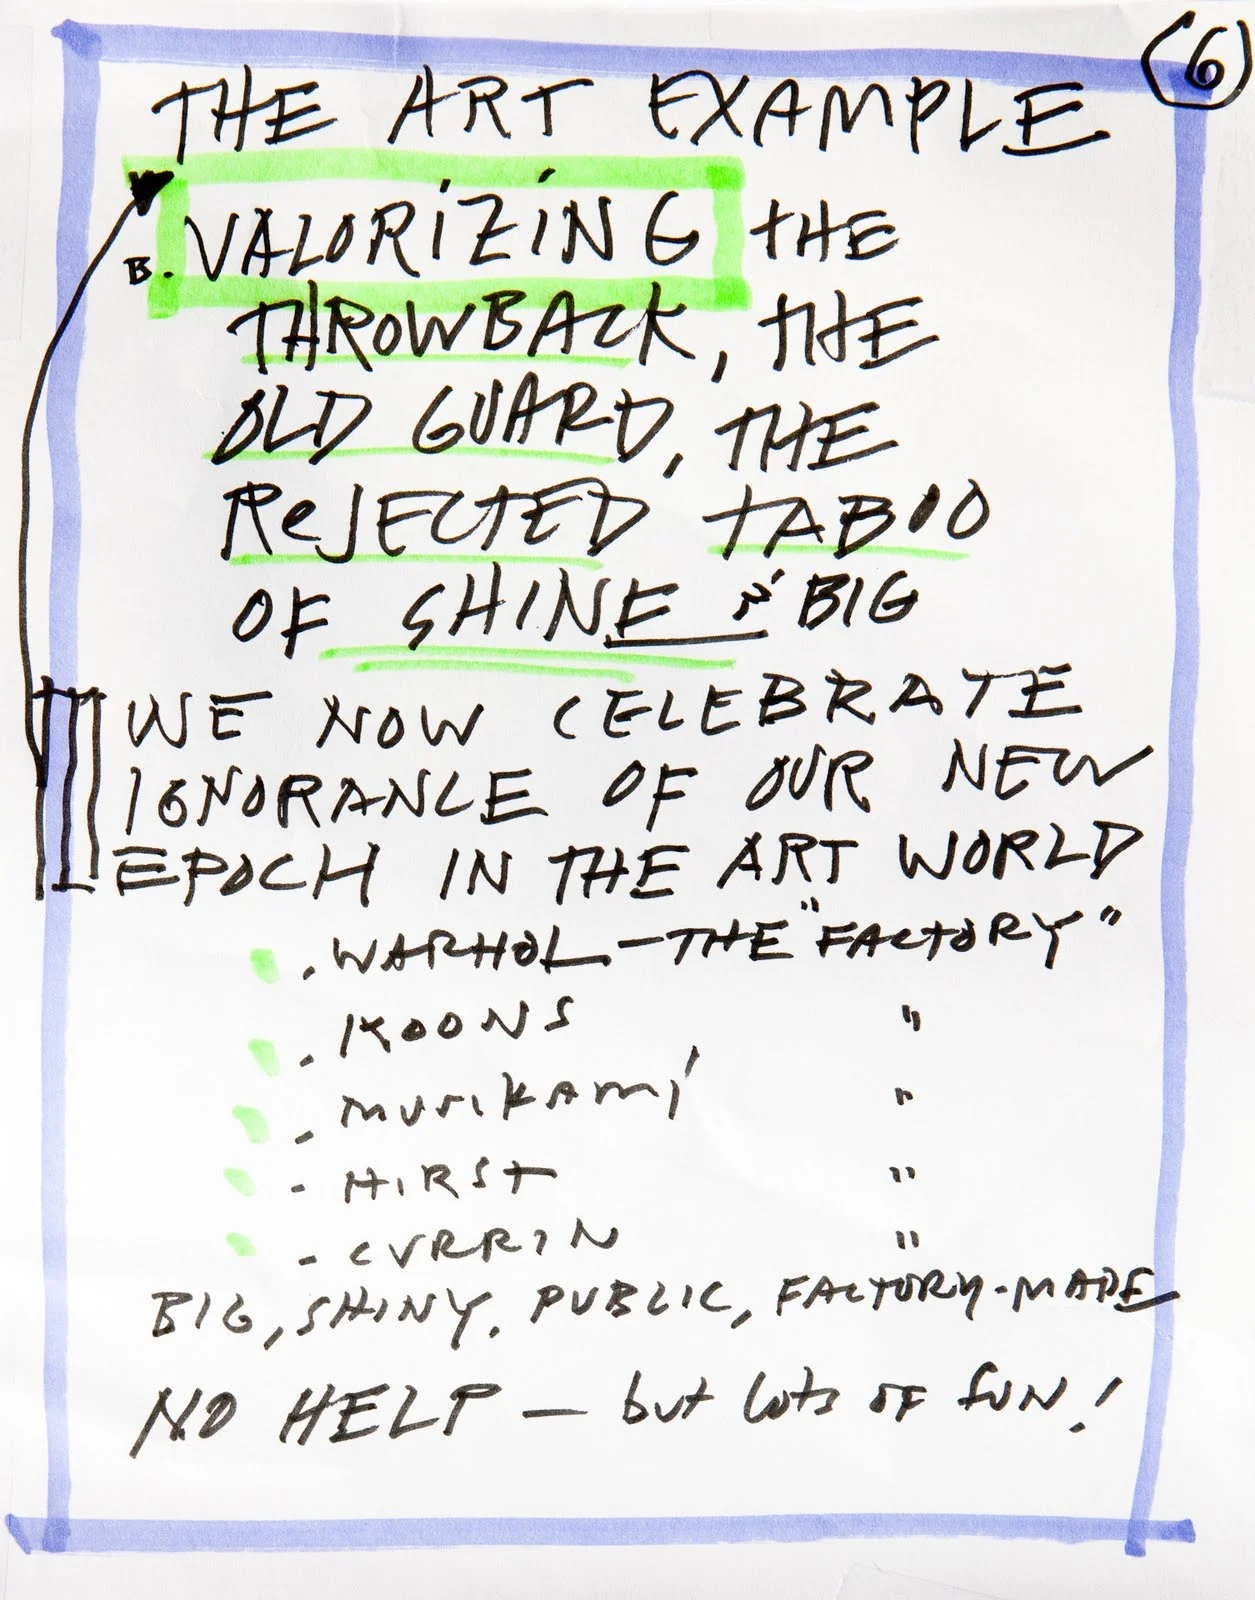 (6)
THE ART EXAMPLE
B. VALORIZING THE
THROWBACK, THE
OLD GUARD, THE
REJECTED TABOO
OF SHINE & BIG
WE NOW CELEBRATE
IGNORANCE OF OUR NEW
EPOCH IN THE ART WORLD
. WARHOL - THE "FACTORY"
. KOONS "
. MURIKAMI "
- HIRST "
- CURRIN "
BIG, SHINY, PUBLIC, FACTORY-MADE
NO HELP - but lots OF FUN!